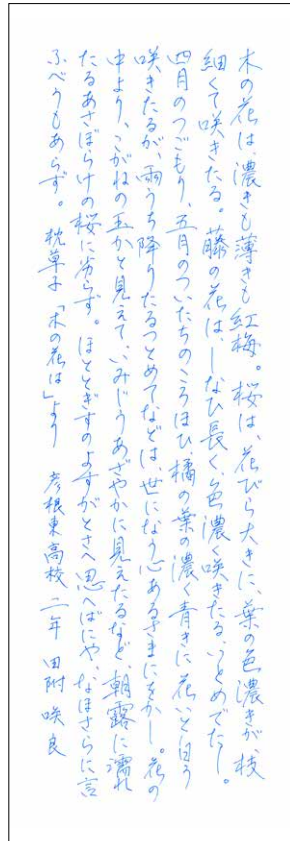 木の花は、濃きも薄きも紅梅。桜は、花びら大きに、葉の色濃きが、枝
細くて咲きたる。藤の花は、しなひ長く、色濃く咲きたる、いとめでたし。
四月のつごもり、五月のついたちのころほひ、橘の葉の濃く青きに、花いと白う
咲きたるが、雨うち降りたるつとめてなどは、世になう心あるさまにをかし。花の
中より、こがねの玉かと見えて、いみじうあざやかに見えたるなど、朝露に濡れ
たるあさぼらけの桜に劣らず。ほととぎすのよすがとさへ思へばにや、なほさらに言
ふべうもあらず。 枕草子「木の花は」より 彦根東高校 二年 田附 咲良